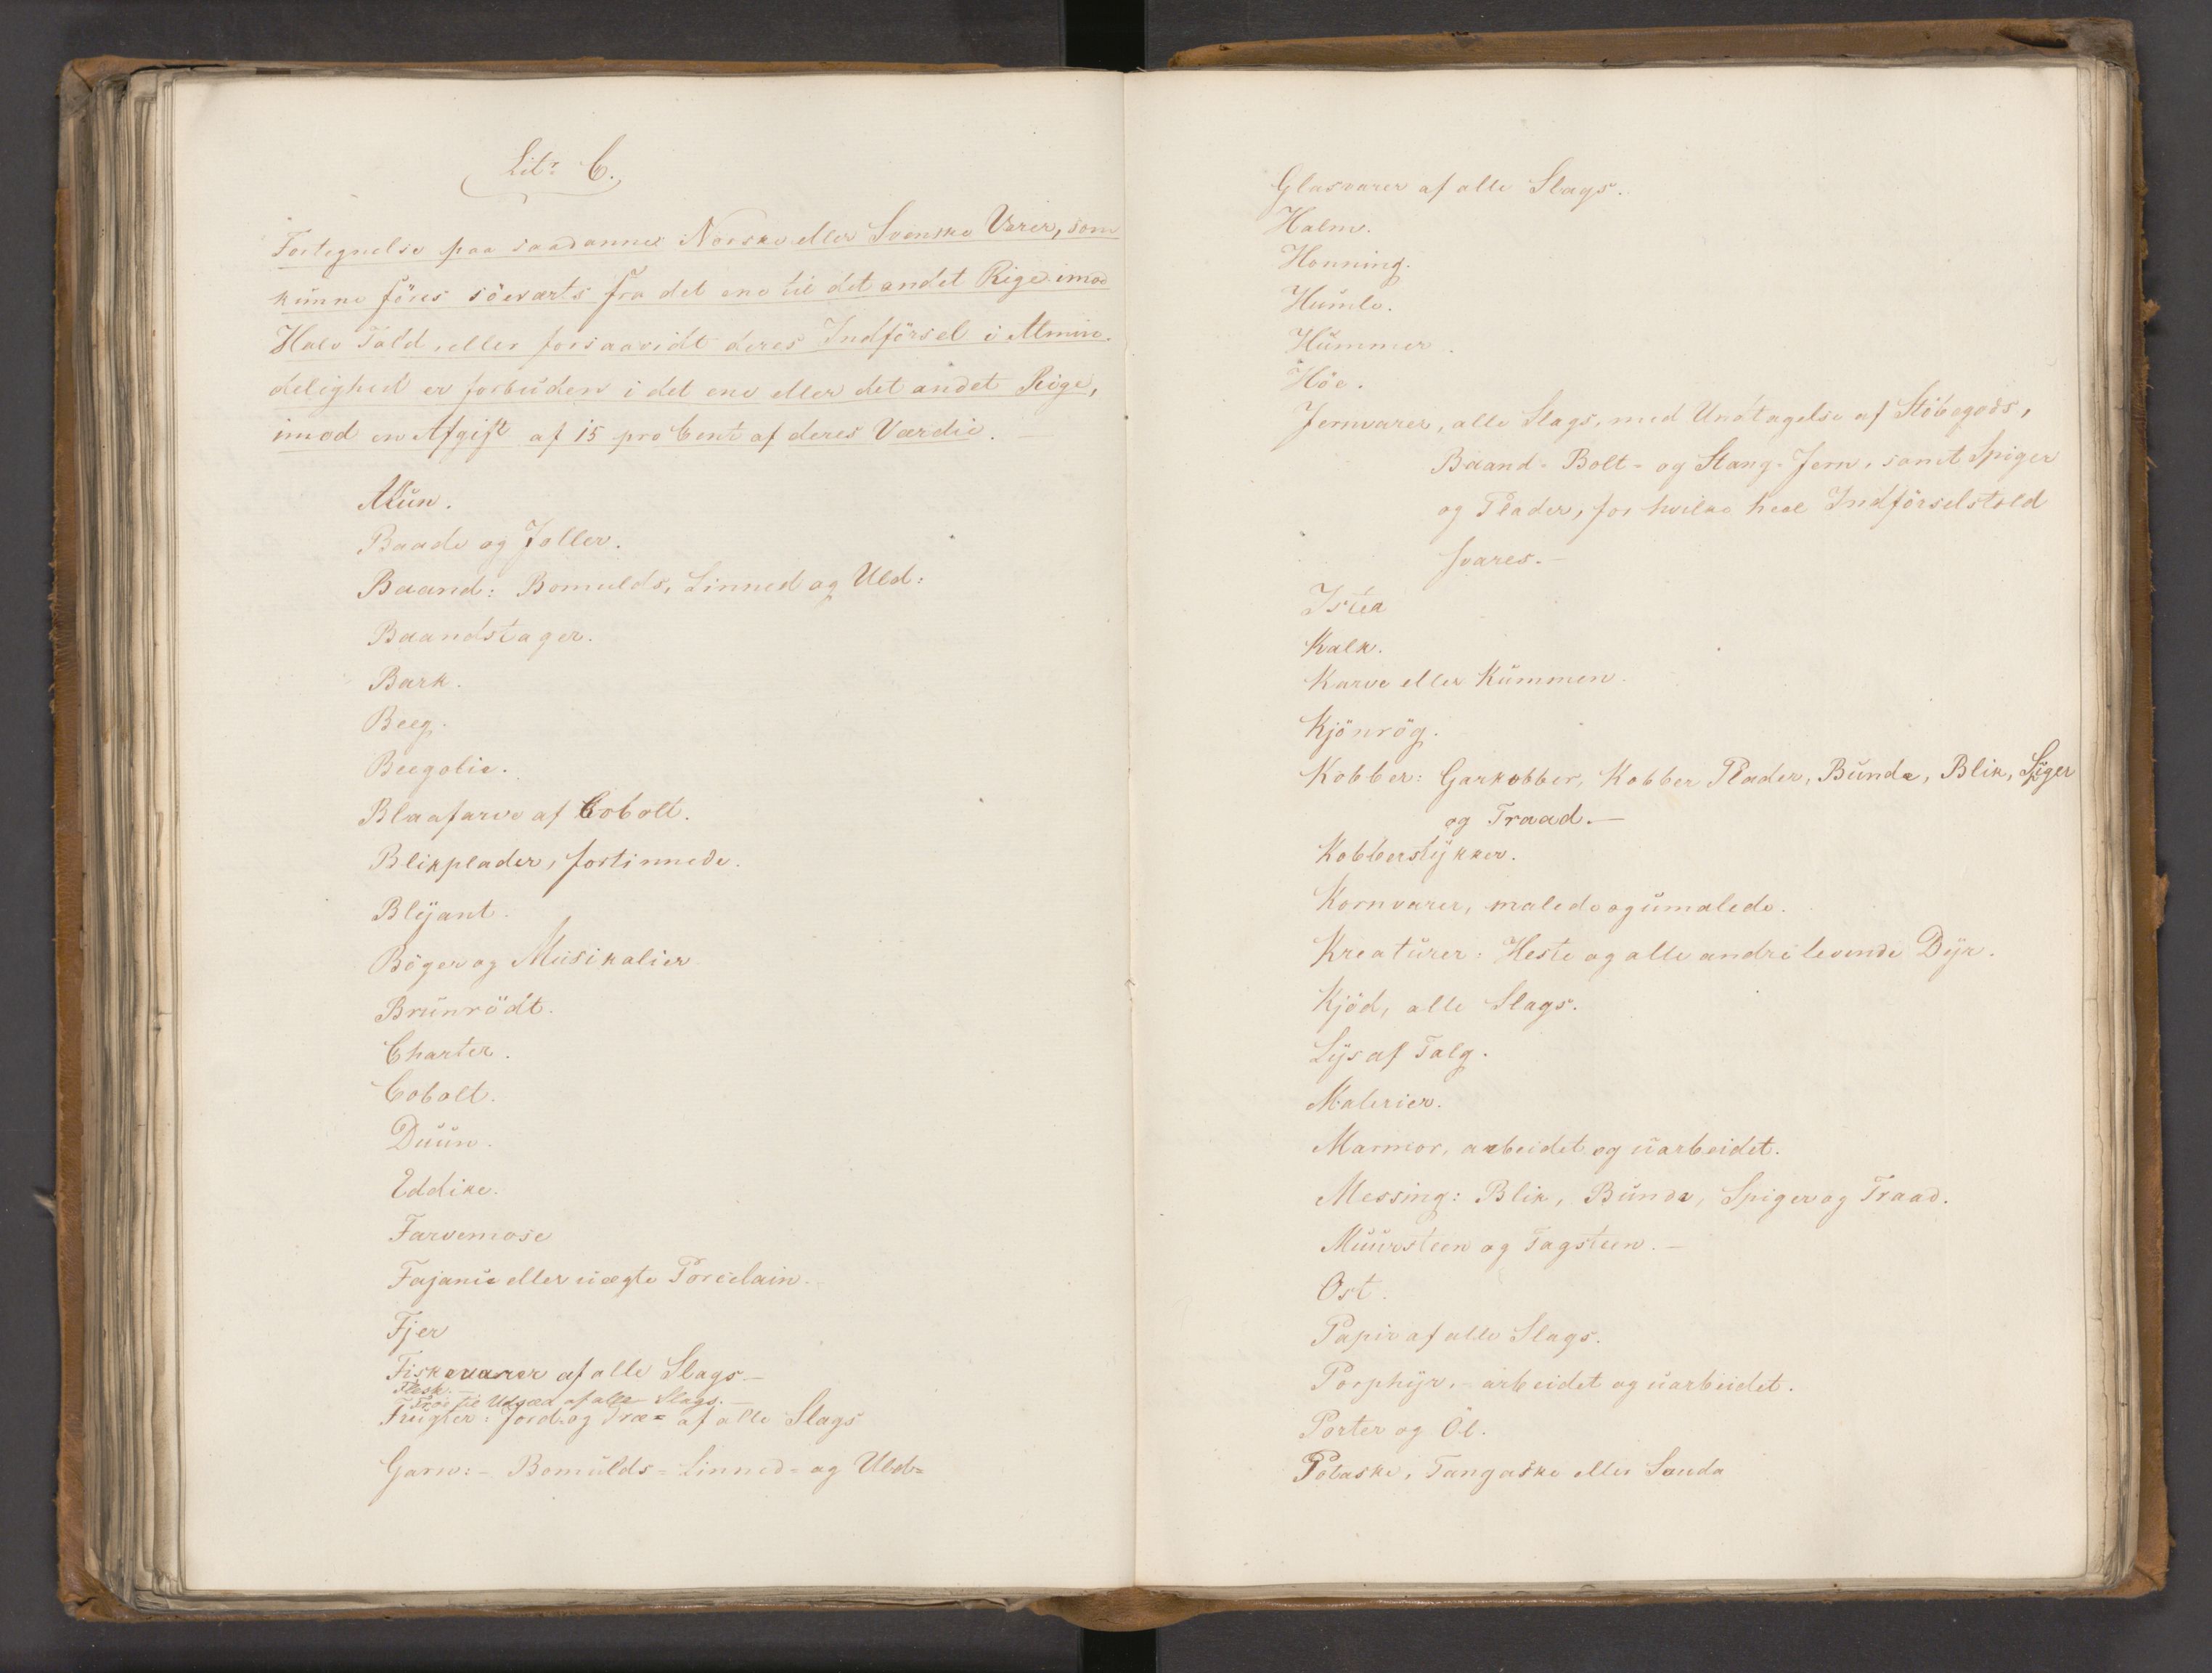 Litr C.
Fortegnelse paa saadanne Norske eller Svenske Varer, som
kunne föres söeværts fra det ene til det andet Rige imod
Halv Told, eller forsaavidt deres Indförsel i Almin-
delighed er forbuden i det ene eller det andet Rige,
imod en Afgift af 15 pro Cent af deres Værdie. —
Alun.
Baade og Joller.
Baand: Bomulds, Linned og Uld:
Baandstager.
Bark.
Beeg.
Beegolie.
Blaafarve af Cobolt.
Blikplader, fortinnede.
Blÿant.
Böger og Musikalier
Brunrödt.
Charter.
Cobolt.
Duun.
Eddike.
Farvemose
Fajance eller uægte Porcelain.
Fjer
Fiskevarer af alle Slags. —
Flesk. —
Fröe til Udsæd af alle Slags. —
Frugter: Jord- og Træ= af alle Slags
Garn: - Bomulds= Linned= og Uld=
Glasvarer af alle Slags.
Halm.
Honning.
Humle.
Hummer.
Höe.
Jernvarer, alle Slags, med Undtagelse af Stöbegods,
Baand- Bolt- og Stang- Jern, samt Spiger
og Plader, for hvilke heel Indförselstold
svares. —
Ister
Kalk.
Karve eller Kummen.
Kjönrög.
Kobber: Garkobber, Kobber Plader, Bunde, Blik, Spiger
og Traad. —
Kobberstÿkker.
Kornvarer, malede og umalede.
Kreaturer: Heste og alle andre levende Dÿr.
Kjöd, alle Slags.
Lÿs af Talg.
Malerier.
Marmor, arbeidet og uarbeidet.
Messing: Blik, Bunde, Spiger og Traad.
Muursteen og Tagsteen. —
Ost.
Papir af alle Slags.
Porphÿr, - arbeidet og uarbeidet.
Porter og Öl.
Potaske, Tangaske eller Sauda